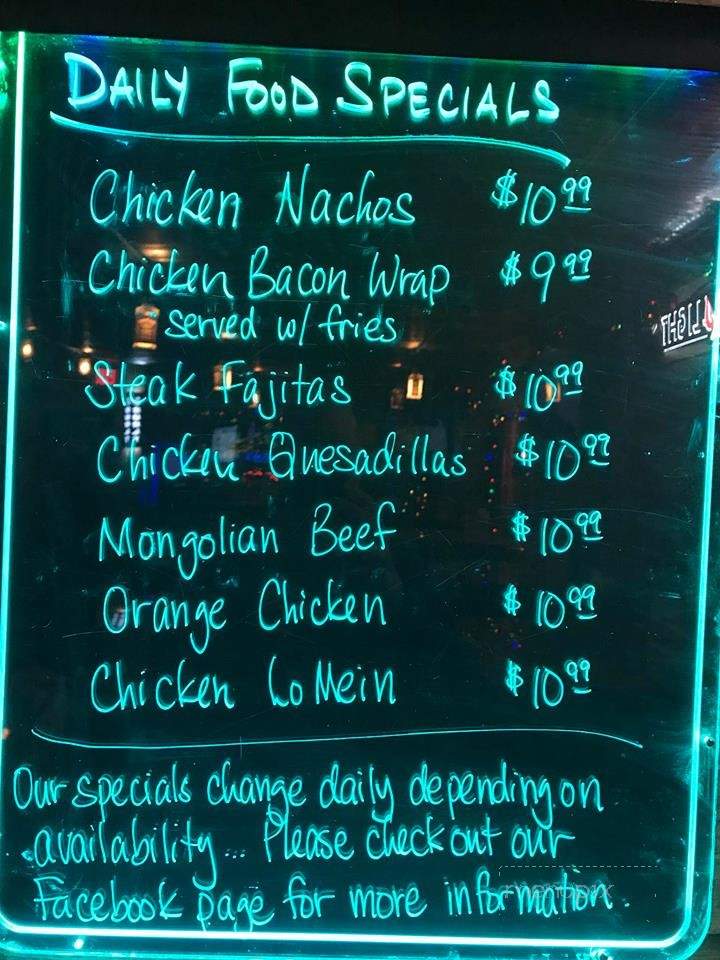 DAILY FOOD SPECIALS
Chicken Nachos $10.99
Chicken Bacon Wrap $9.99
served w/ fries
Steak Fajitas $10.99
Chicken Quesadillas $10.99
Mongolian Beef $10.99
Orange Chicken $10.99
Chicken Lo Mein $10.99
Our specials change daily depending on
availability... Please check out our
Facebook page for more information.